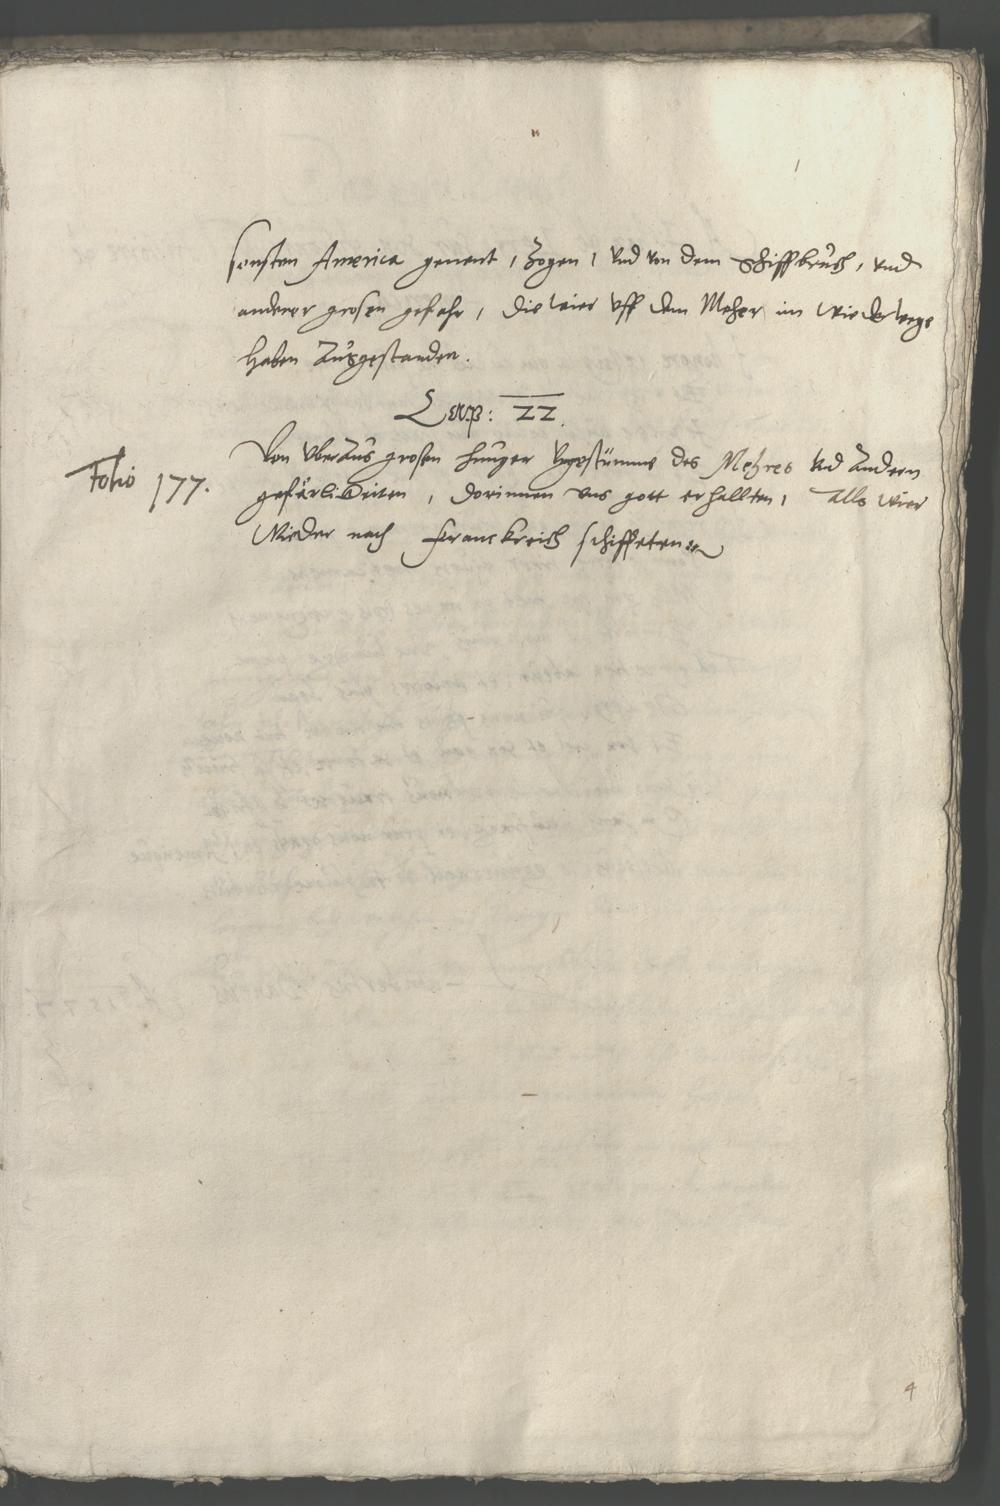 sonsten America genent, Zogen, vnd von dem Schiffbruch, vnd
anderer grosen gefahr, die wier vff dem Meher im wiederwege
haben Außgestanden.
Cap: 22.
Folio 177.
Von vberaus grosen hunger vngestümme des Mehres vnd andern
gefärlikeiten, dorinnen vns gott erhallten, alls wier
Wieder nach Franckreich schiffeten
4